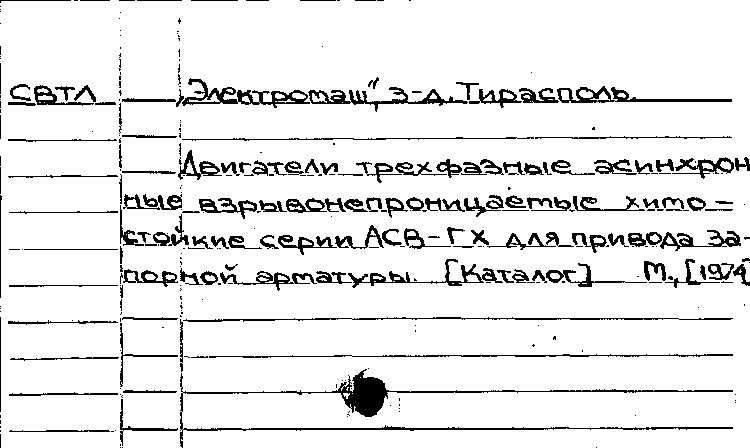 СВТЛ „Электромаш“, з-д. Тирасполь.
Двигатели трехфазные асинхрон
ные взрывонепроницаемые химо-
стойкие серии АСВ-ГХ для привода за-
порной арматуры. [Каталог] М., [1974]